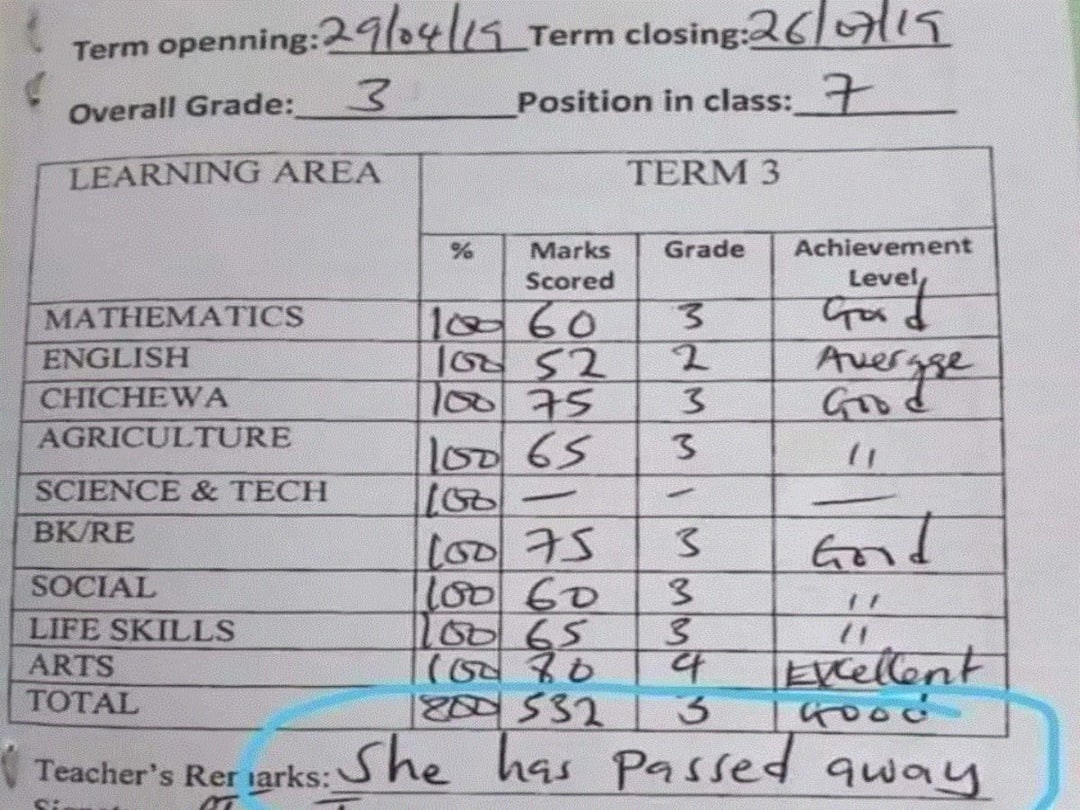 Term openning: 29/04/19 Term closing: 26/07/19
Overall Grade: 3 Position in class: 7
LEARNING AREA TERM 3
% Marks Scored Grade Achievement Level
MATHEMATICS 100 60 3 Good
ENGLISH 100 52 2 Average
CHICHEWA 100 75 3 Good
AGRICULTURE 100 65 3 "
SCIENCE & TECH 100 — - —
BK/RE 100 75 3 Good
SOCIAL 100 60 3 "
LIFE SKILLS 100 65 3 "
ARTS 100 80 4 Excellent
TOTAL 800 532 3 Good
Teacher's Remarks: She has passed away